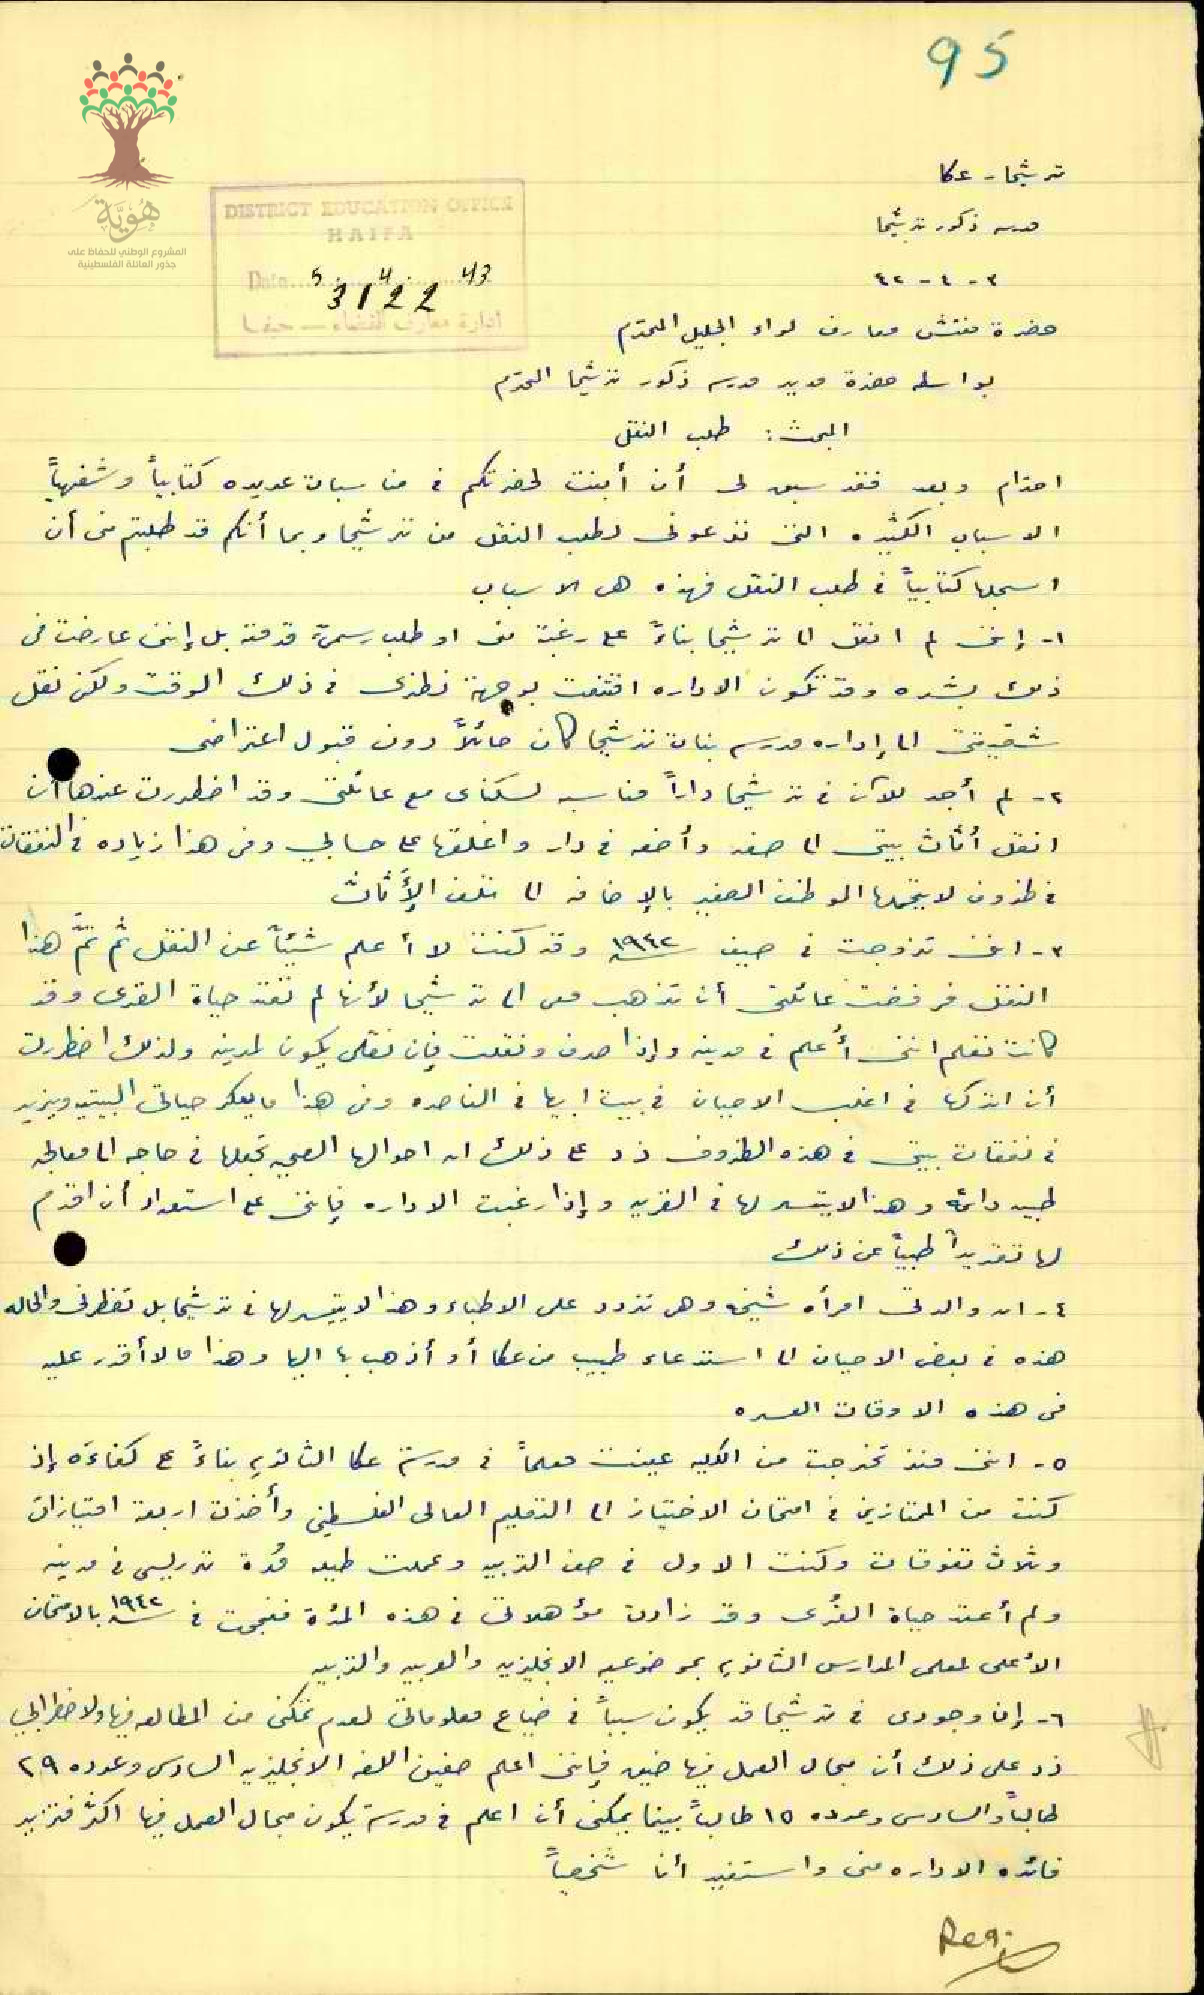 95
هُوِيَّة
المشروع الوطني للحفاظ على
جذور العائلة الفلسطينية
DISTRICT EDUCATION OFFICE
HAIFA
Date 5 4 43
3122
ادارة معارف القضاء – حيفا
ترشيحا - عكا
مدرسه ذكور ترشيحا
٣ - ٤ - ٤٣
حضرة مفتش معارف لواء الجليل المحترم
بواسطه حضرة مدير مدرسه ذكور ترشيحا المحترم
البحث: طلب النقل
احترام وبعد فقد سبق لى أن أبنت لحضرتكم فى مناسبات عديده كتابياً وشفهياً
الاسباب الكثيره التى تدعونى لطلب النقل من ترشيحا وبما أنكم قد طلبتم منى أن
اسجلها كتابياً فى طلب النقل فهذه هى الاسباب
١- إننى لم انقل الى ترشيحا بناءً على رغبة منى او طلب رسمى قدمته بل إننى عارضت فى
ذلك بشده وقد تكون الاداره اقتنعت بوجهة نظرى فى ذلك الوقت ولكن نقل
شقيقتى الى إداره مدرسه بنات ترشيحا كان حائلاً دون قبول اعتراضى
٢- لم أجد للآن فى ترشيحا داراً مناسبه لسكناى مع عائلتى وقد اضطررت عندها أن
انقل أثاث بيتى الى صفد وأضعه فى دار واغلقها على حسابي وفى هذا زياده فى النفقات
فى ظروف لا يتحملها الموظف الصغير بالإضافه الى تلف الأثاث
٣- اننى تزوجت فى صيف ١٩٤٢ وقد كنت لا أعلم شيئاً عن النقل ثم تمَّ هذا
النقل فرفضت عائلتى أن تذهب معى الى ترشيحا لأنها لم تعتد حياة القرى وقد
كانت تعلم اننى أُعلم فى مدينه وإذا صدف ونقلت فإن نقلى يكون لمدينه ولذلك اضطررت
أن اتركها فى اغلب الاحيان فى بيت ابيها فى الناصره وفى هذا ما يعكر حياتى البيتيه ويزيد
فى نفقات بيتى فى هذه الظروف زد على ذلك ان احوالها الصحيه تجعلها فى حاجه الى معالجه
طبيه دائمه وهذا لا يتيسر لها فى القريه وإذا رغبت الاداره فإننى على استعداد أن اقدم
لها تقريراً طبياً عن ذلك
٤- ان والدتى امرأه شيخه وهى تتردد على الاطباء وهذا لا يتيسر لها فى ترشيحا بل تضطرنى والحاله
هذه فى بعض الاحيان الى استدعاء طبيب من عكا أو أذهب بها اليها وهذا ما لا أقدر عليه
فى هذه الاوقات العسره
٥- اننى منذ تخرجت من الكليه عينت معلماً فى مدرسة عكا الثانويه بناءً على كفاءَه إذ
كنت من الممتازين فى امتحان الاجتياز الى التعليم العالى الفلسطيني وأخذت اربعة امتيازات
وثلاث تفوقات وكنت الاول فى صف التربيه وعملت طيله مُدة تدريسى فى مدينه
ولم أعتد حياة القُرى وقد زادت مؤهلاتى فى هذه المدُة فنجحت فى ١٩٤٢ بالامتحان
الأعلى لمعلمى المدارس الثانويه بموضوعيه الانجليزيه والعربيه والتربيه
٦- إن وجودى فى ترشيحا قد يكون سبباً فى ضياع معلوماتى لعدم تمكنى من المطالعه فيها ولاضطرابي
زد على ذلك أن مجال العمل فيها ضيق فإننى اعلم صفين اللغه الانجليزيه السادس وعدده ٢٩
طالباً والسادس وعدده ١٥ طالباً بينما يمكنى أن اعلم فى مدرسة يكون مجال العمل فيها اكثر فتزيد
فائده الاداره منى واستفيد أنا شخصياً
Reg.